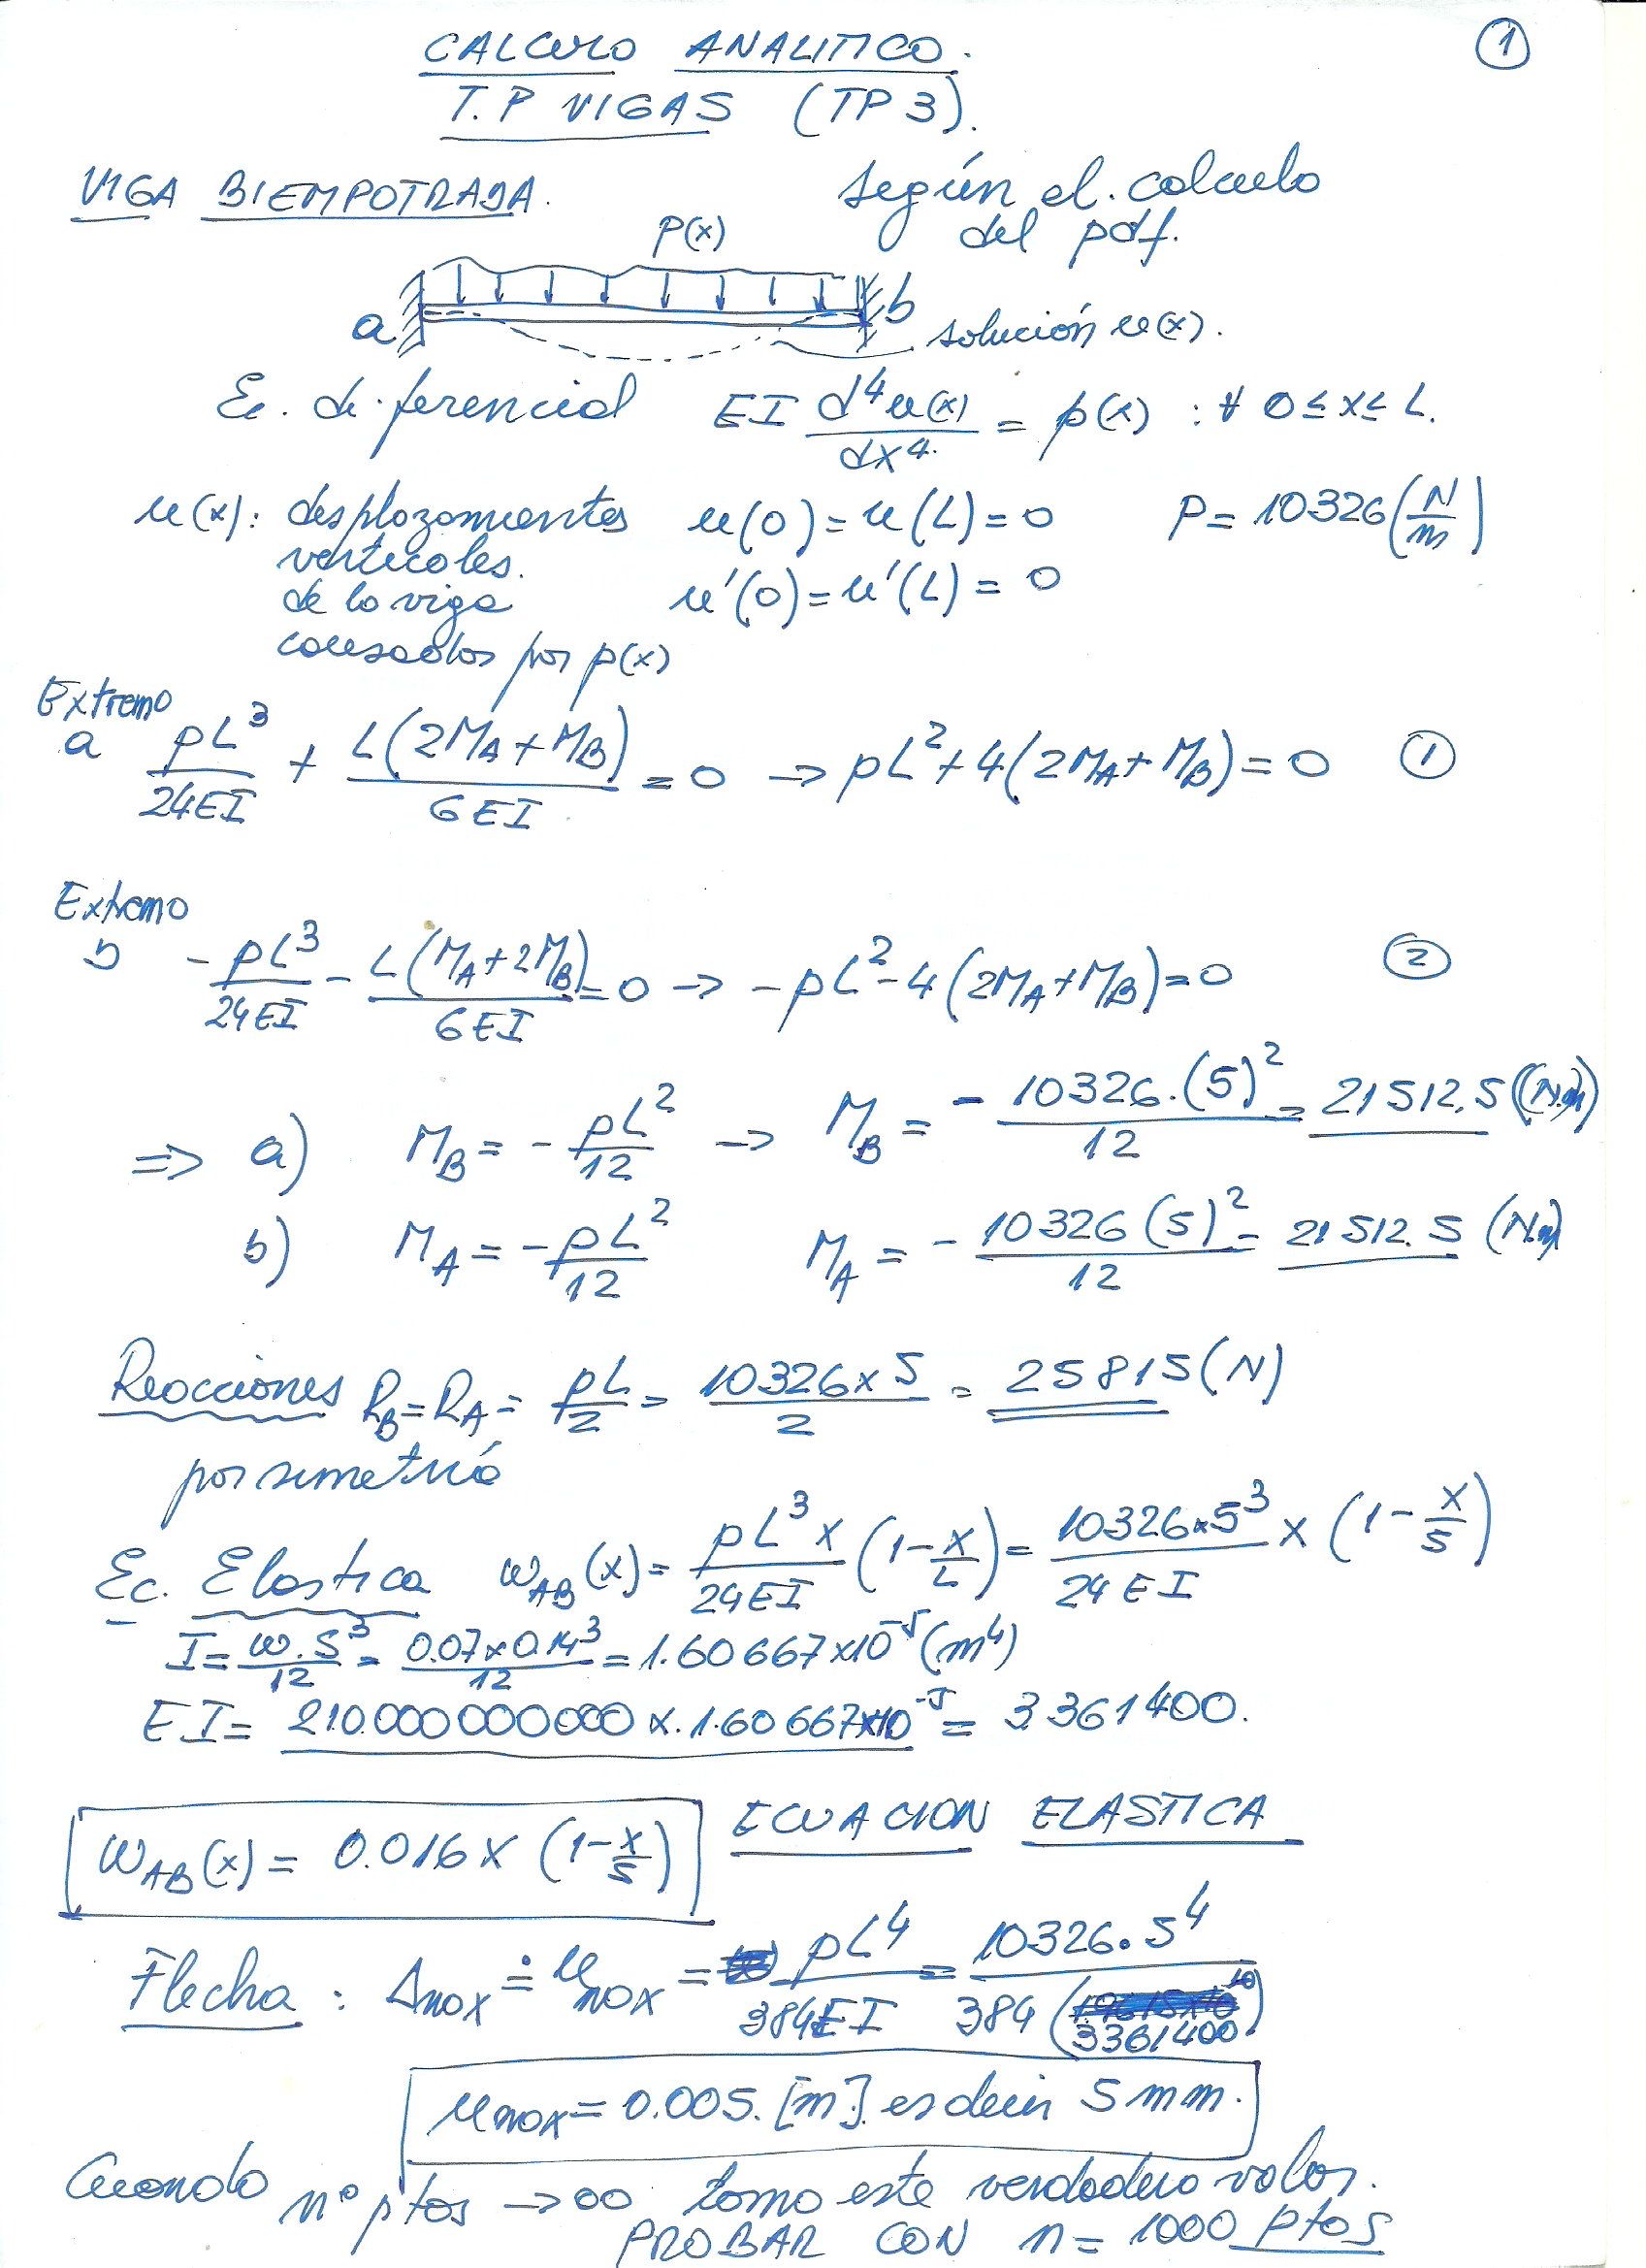 CALCULO ANALITICO. ①
T.P VIGAS (TP 3).
VIGA BIEMPOTRADA. Según el calculo
del pdf.
P(x)
a b
solución u(x).
Ec. diferencial EI d⁴u(x)/dx⁴ = p(x) : ∀ 0 ≤ x ≤ L.
u(x): desplazamientos u(0) = u(L) = 0 P = 10326 (N/m)
verticales.
de la viga u'(0) = u'(L) = 0
causados por p(x)
Extremo
a pL³/24EI + L(2MA + MB)/6EI = 0 → pL² + 4(2MA + MB) = 0 ①
Extremo
b - pL³/24EI - L(MA + 2MB)/6EI = 0 → - pL² - 4(2MA + MB) = 0 ②
⇒ a) MB = - pL²/12 → MB = - 10326.(5)²/12 = 21512.5 (N.m)
b) MA = - pL²/12 MA = - 10326(5)²/12 = 21512.5 (N.m)
Reacciones RB = RA = pL/2 = 10326x5/2 = 25815 (N)
por simetría
Ec. Elastica ωAB(x) = pL³x/24EI (1 - x/L) = 10326x5³/24EI x (1 - x/5)
I = ω.S³/12 = 0.07x0.14³/12 = 1.60667x10⁻⁵ (m⁴)
EI = 210.000000000 x 1.60667x10⁻⁵ = 3361400.
ωAB(x) = 0.016 x (1 - x/5) ECUACION ELASTICA
Flecha : Δmax ≐ umax = pL⁴/384EI = 10326.5⁴/384(3361400)
umax = 0.005. [m]. es decir 5 mm.
Cuando nº ptos → ∞ tomo este verdadero valor.
PROBAR CON n = 1000 ptos